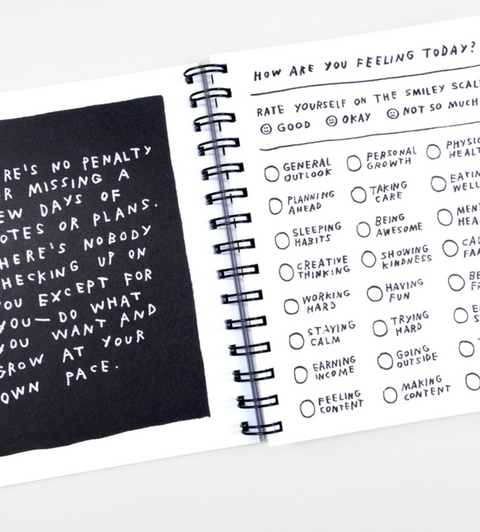 RE'S NO PENALTY
R MISSING A
EW DAYS OF
OTES OR PLANS.
HERE'S NOBODY
HECKING UP ON
YOU EXCEPT FOR
YOU—DO WHAT
YOU WANT AND
GROW AT YOUR
OWN PACE.
HOW ARE YOU FEELING TODAY?
RATE YOURSELF ON THE SMILEY SCAL
GOOD OKAY NOT SO MUCH
GENERAL
OUTLOOK
PERSONAL
GROWTH
PHYSIC
HEALT
PLANNING
AHEAD
TAKING
CARE
EATIN
WELL
SLEEPING
HABITS
BEING
AWESOME
MEN
HEA
CREATIVE
THINKING
SHOWING
KINDNESS
CAL
FA
WORKING
HARD
HAVING
FUN
BE
F
STAYING
CALM
TRYING
HARD
E
S
EARNING
INCOME
GOING
OUTSIDE
FEELING
CONTENT
MAKING
CONTENT